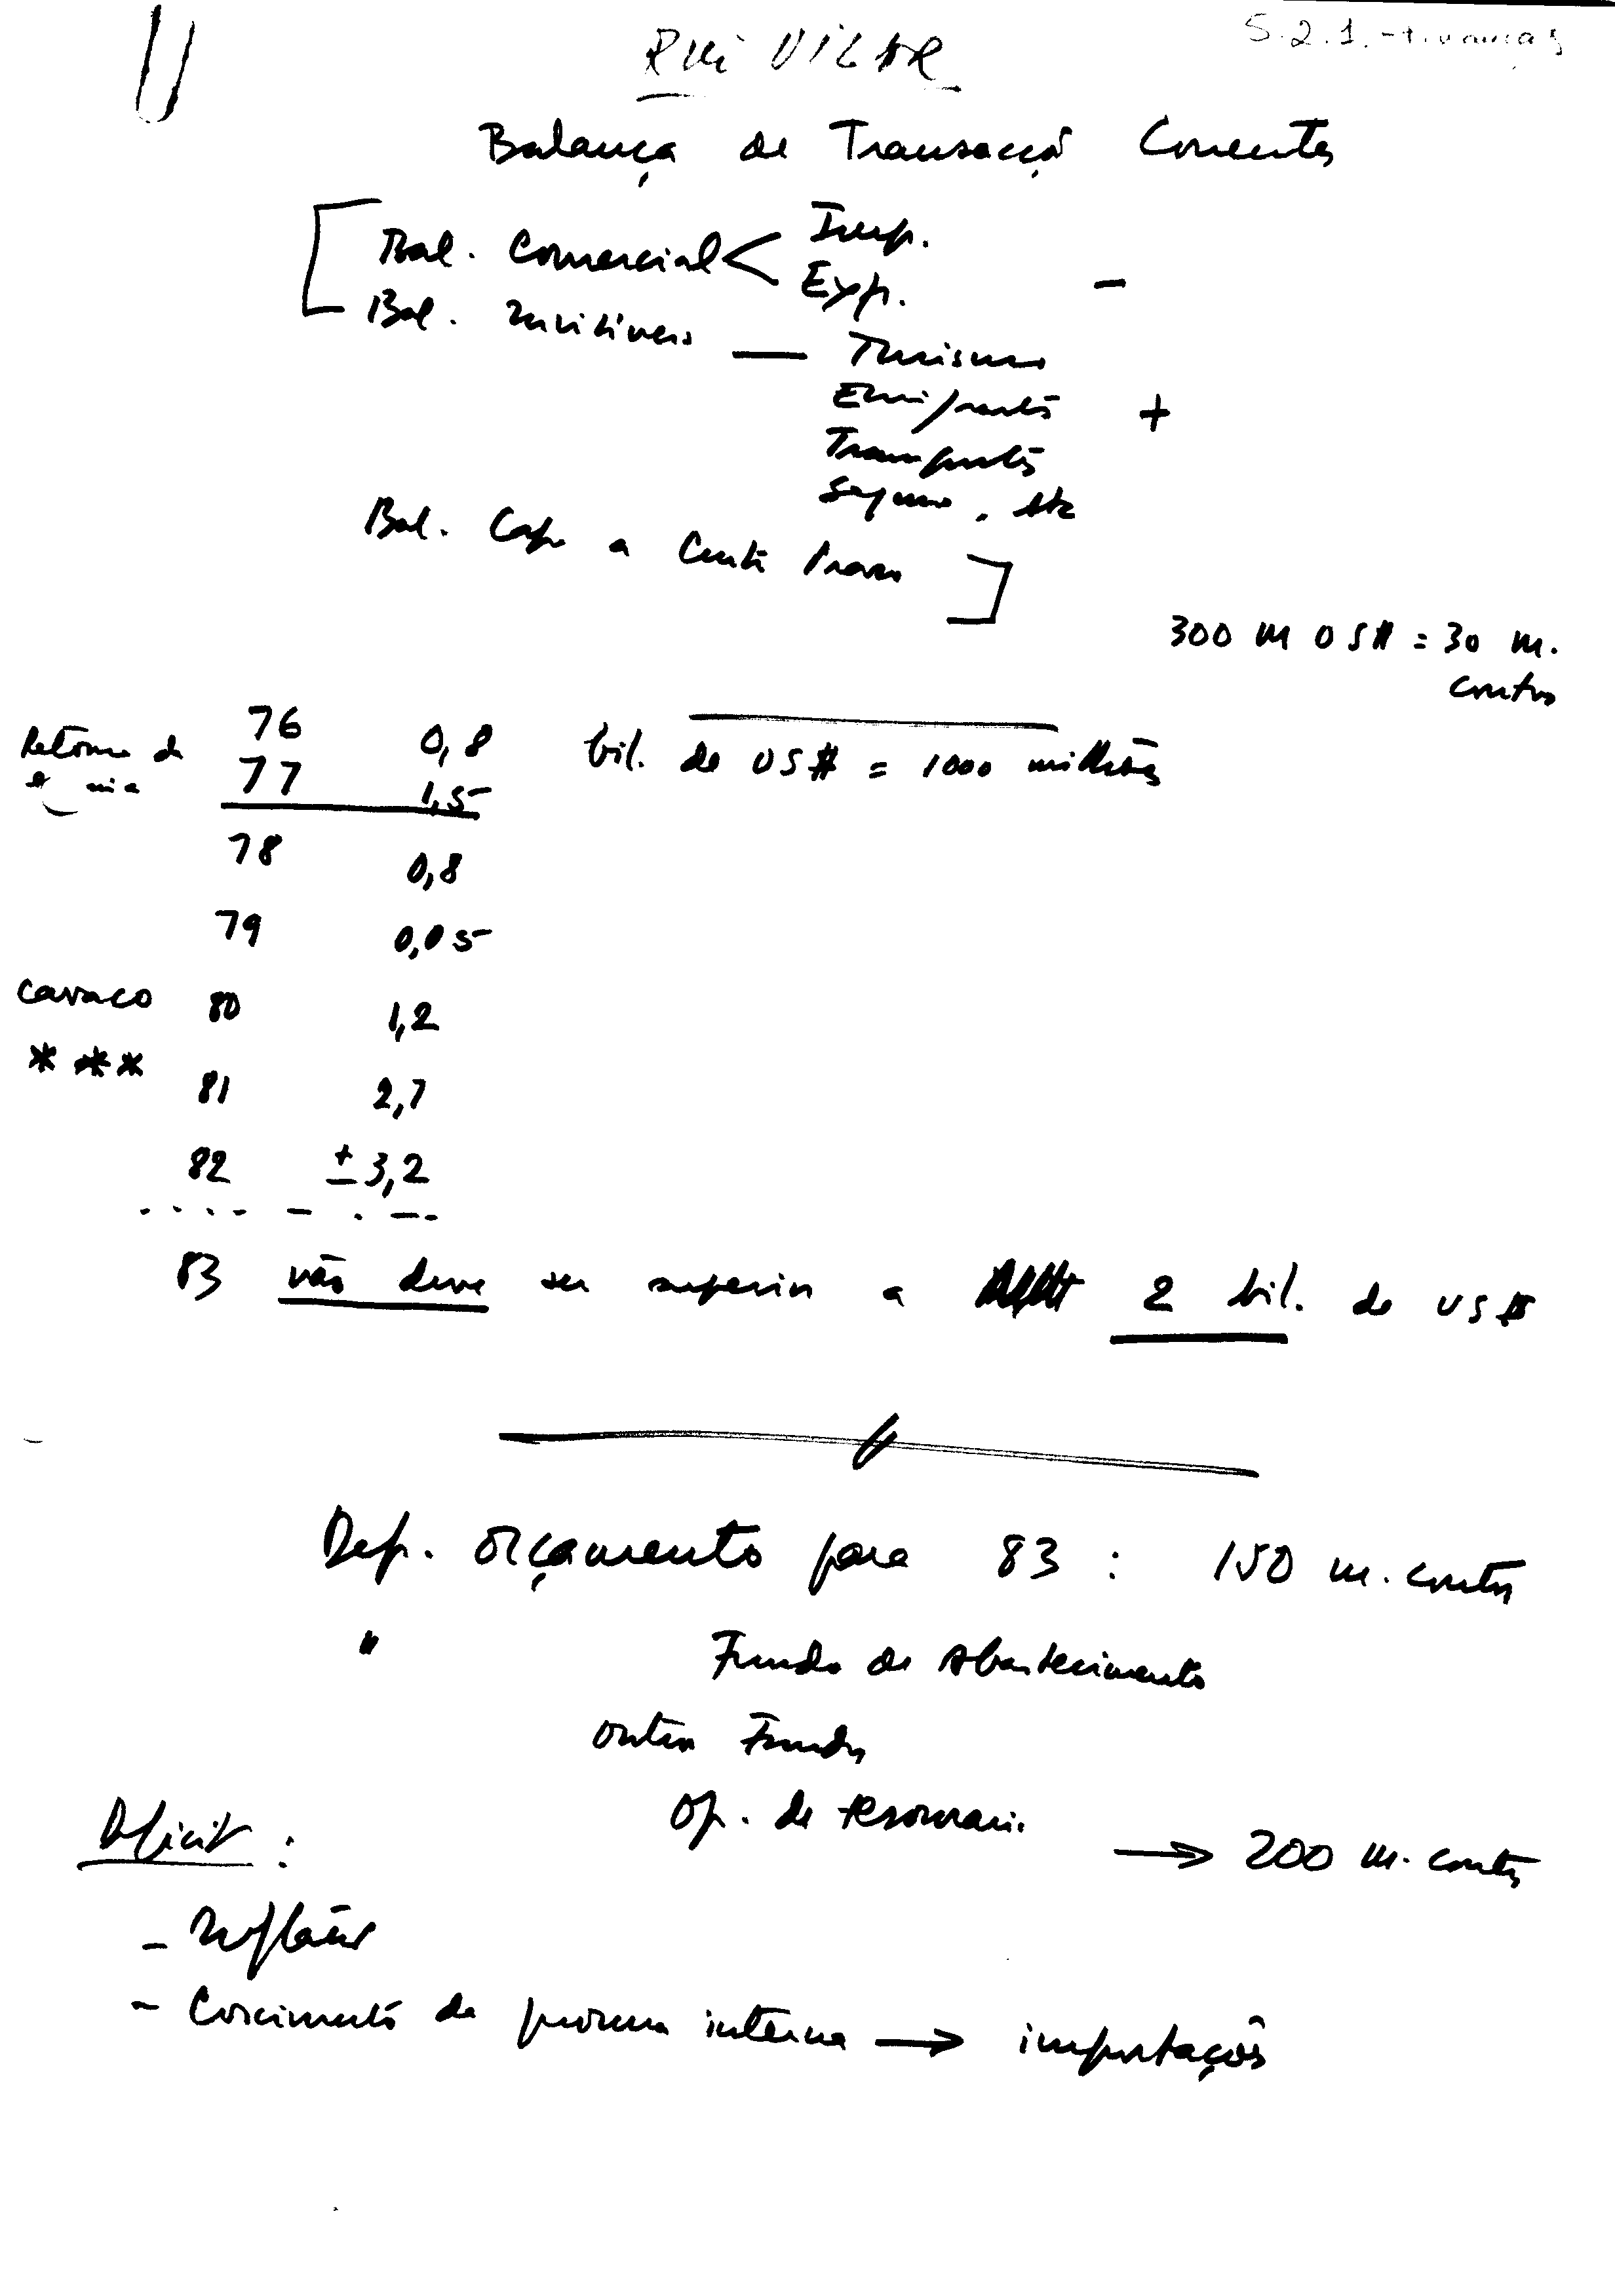 S.2.1. - Finanças
RUI VILAR
Balança de Transacções Correntes
Bal. Comercial < Imp.
Exp. -
Bal. Invisíveis — Turismo
Emigrantes +
Transportes
Seguros, etc
Bal. Cap a Curto Prazo
300 M US$ = 30 m.
contos
Retoma da 76 0,8 bil. de US$ = 1000 milhões
77 1,5
78 0,8
79 0,05
Cavaco 80 1,2
*** 81 2,7
82 ± 3,2
83 não deve ser superior a 2 bil. de US$
Def. orçamento para 83 : 150 m. contos
" Fundo de Abastecimento
outros Fundos
Op. de tesouraria → 200 m. contos
Deficit :
- Inflação
- Crescimento da procura interna → importações